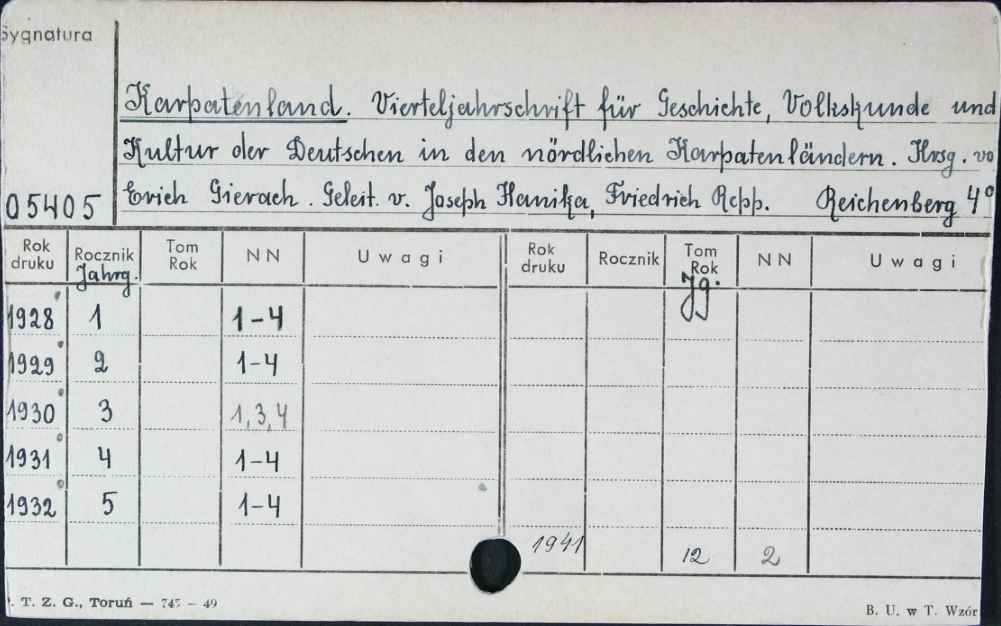 Sygnatura
Karpatenland. Vierteljahrschrift für Geschichte, Volkskunde und
Kultur der Deutschen in den nördlichen Karpatenländern. Hrsg. vo
05405 Erich Gierach. Geleit. v. Joseph Hanika, Friedrich Repp. Reichenberg 4°
Rok druku Rocznik Jahrg. Tom Rok NN Uwagi Rok druku Rocznik Tom Rok Jg. NN Uwagi
1928 1 1-4
1929 2 1-4
1930 3 1,3,4
1931 4 1-4
1932 5 1-4
1941 12 2
. T. Z. G., Toruń — 745 - 49 B. U. w T. Wzór